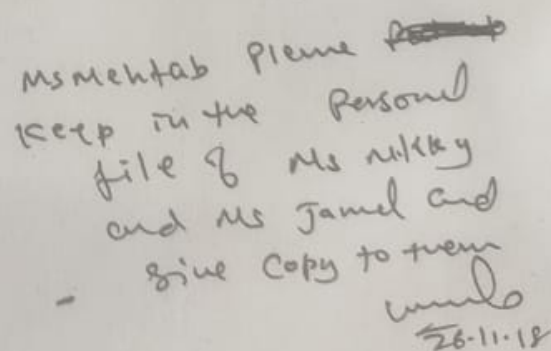 Ms Mehtab Please
Keep in the Personal
file of Ms Nikky
and Ms Jamel and
give Copy to them
26-11-18